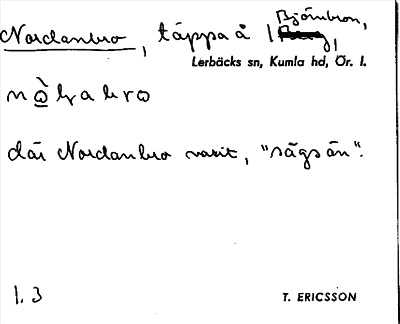 Björnbron,
Nordanbro, täppa å 1
Lerbäcks sn, Kumla hd, Ör. l.
där Nordanbro varit, "sägs än".
1.3
T. ERICSSON